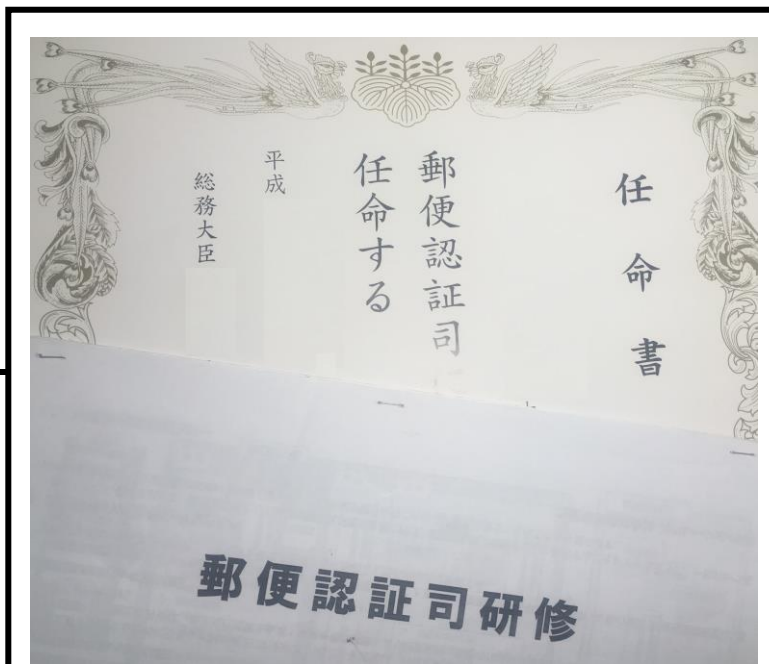 任命書
郵便認証司
任命する
平成
総務大臣
郵便認証司研修